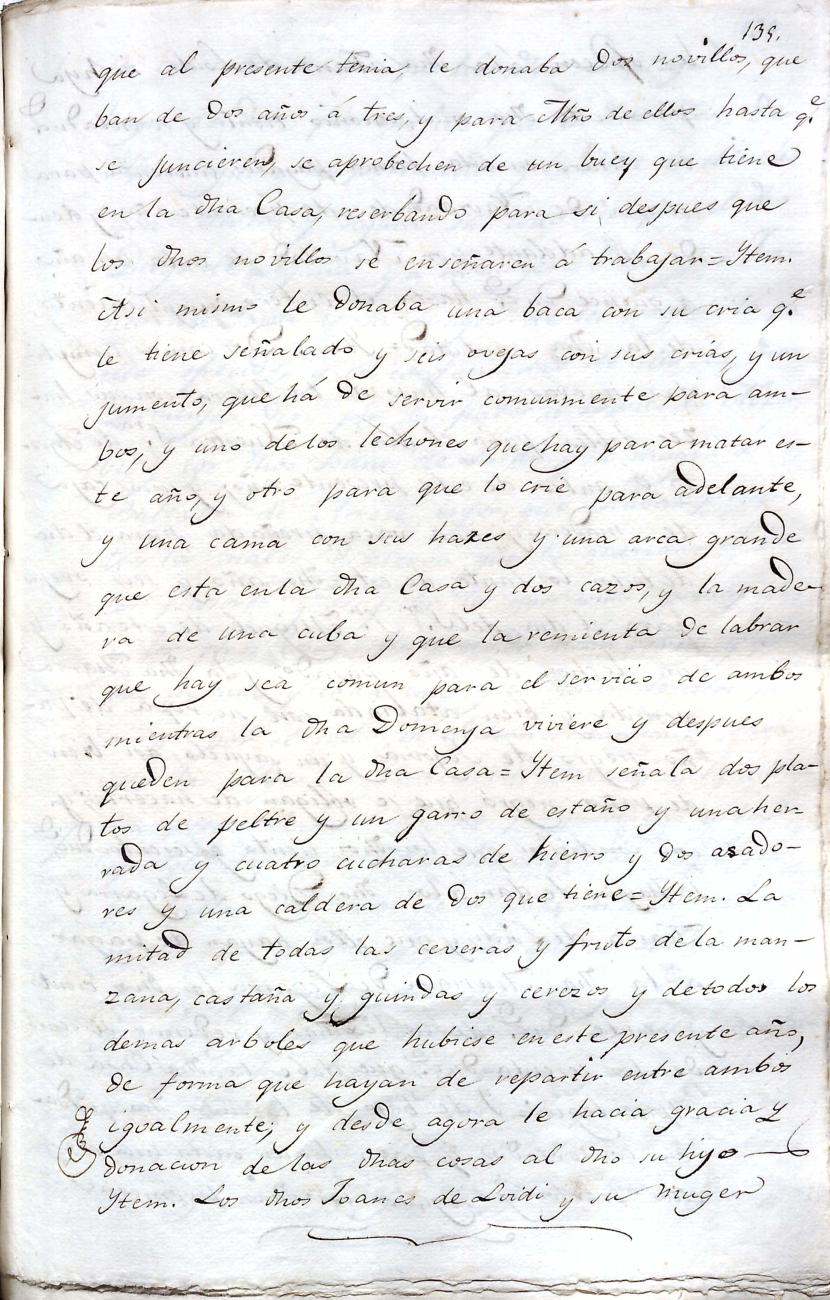 135.
que al presente tenia, le donaba dos novillos, que
ban de dos años á tres, y para Mño de ellos hasta q.e
se juncieren, se aprobechen de un buey que tiene
en la dha Casa, reserbando para si, despues que
los dhos novillos se enseñaren á trabajar = Ytem.
Asi mismo le donaba una baca con su cria q.e
le tiene señalado y seis ovejas con sus crias, y un
jumento, que há de servir comunmente para am-
bos, y uno de los lechones que hay para matar es-
te año, y otro para que lo crie para adelante,
y una cama con sus hazes y una arca grande
que esta en la dha Casa y dos cazos, y la made-
ra de una cuba y que la remienta de labrar
que hay sea comun para el servicio de ambos
mientras la dha Domenja viviere y despues
queden para la dha Casa = Ytem señala dos pla-
tos de peltre y un garro de estaño y una her-
rada y cuatro cucharas de hierro y dos asado-
res y una caldera de dos que tiene = Ytem. La
mitad de todas las ceveras y fruto de la man-
zana, castaña y guindas y cerezos y de todos los
demas arboles que hubiese en este presente año,
de forma que hayan de repartir entre ambos
igoalmente; y desde agora le hacia gracia y
donacion de las dhas cosas al dho su hijo —
Ytem. Los dhos Joanes de Loidi y su muger